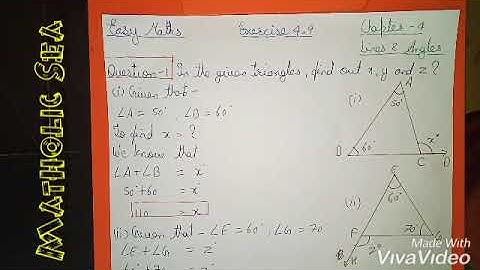 MATHOLIC SEA
Easy Maths Exercise 4.9 Chapter - 4
Lines & Angles
Question-1 In the given triangles, find out x, y and z?
(i) Given that -
∠A = 50° ∠B = 60°
To find x = ?
We know that
∠A + ∠B = x°
50° + 60 = x°
110 = x°
(ii) Given that - ∠E = 60°, ∠G = 70
∠E + ∠G = z°
(i)
A
50°
B
60°
C
x°
D
(ii)
E
60°
F
70°
z°
H
Made With
VivaVideo